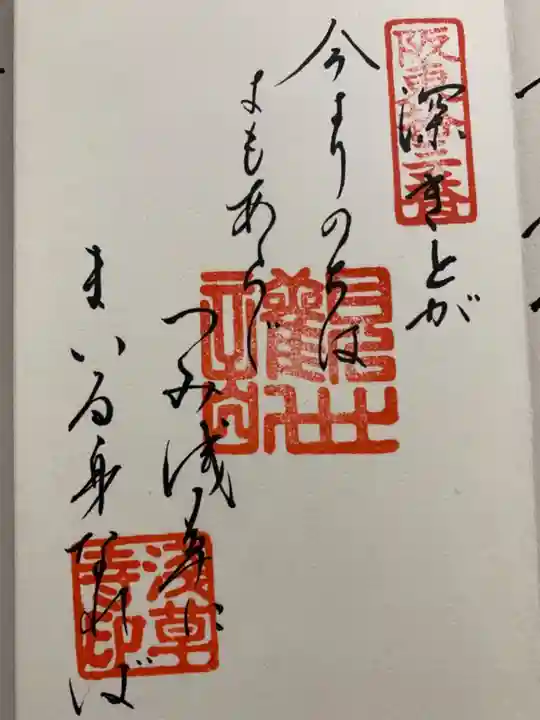 深きとが
今よりのちは
よもあらじ
つみ浅草に
まいる身なれば
阪東第十三番
観世音
浅草寺印